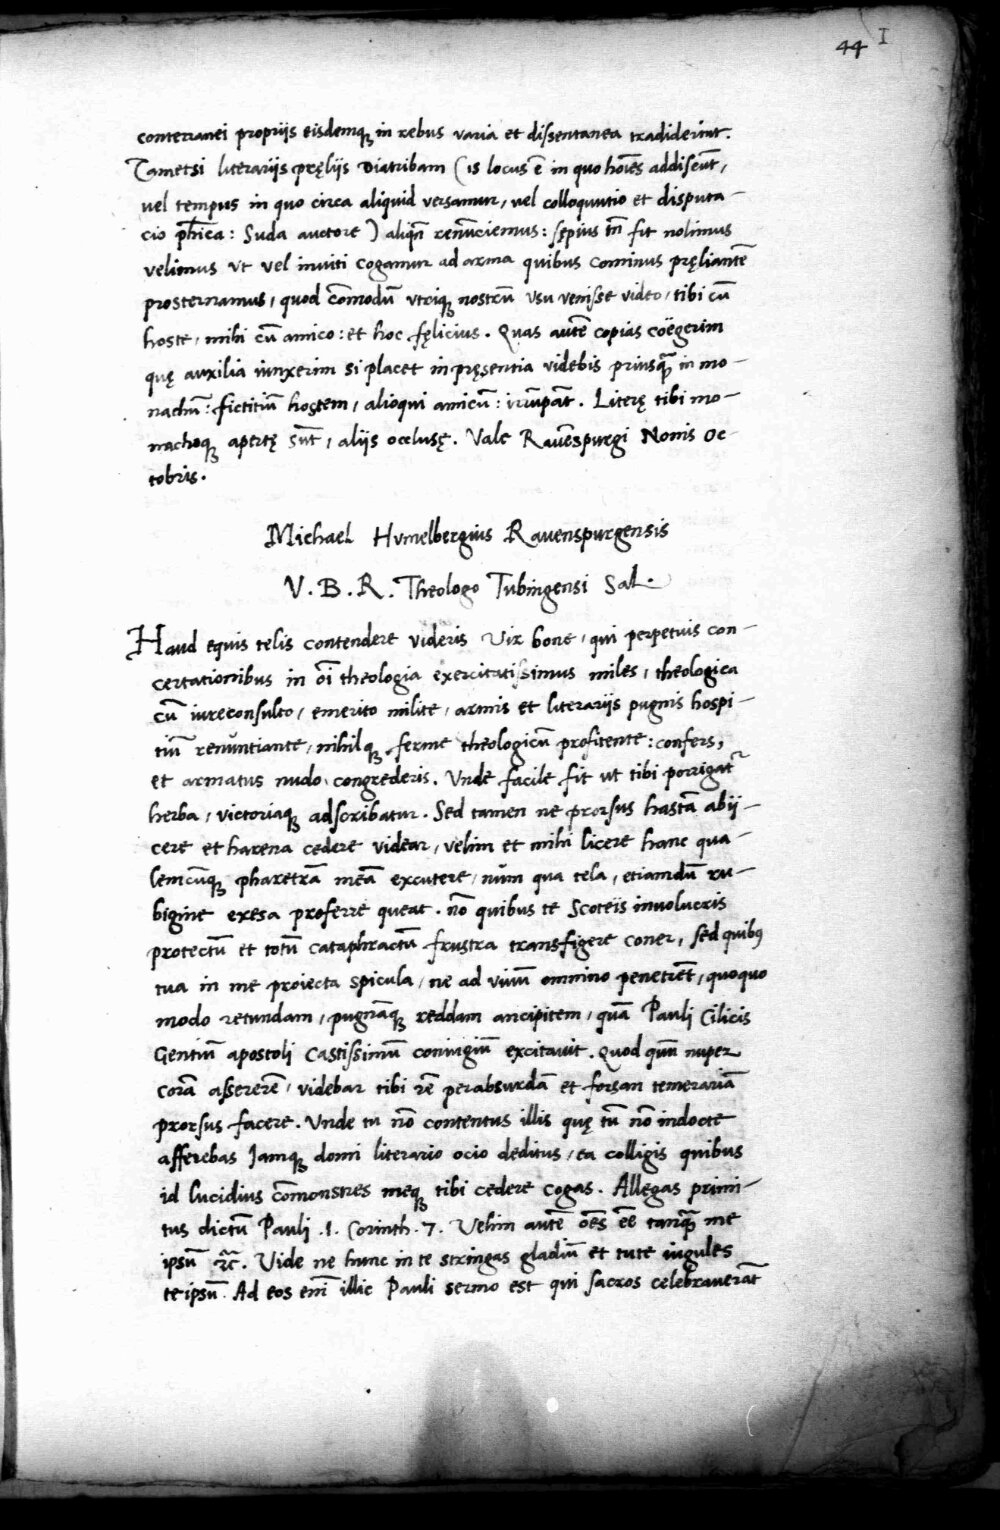 44 I
conterranei proprijs eisdemqꝫ in rebus varia et dissentanea tradiderint.
Tametsi literarijs pręlijs Diatribam ( is locus ē in quo hoīes addiscūt,
vel tempus in quo circa aliquid versamur, vel colloquutio et disputa-
cio ph̄ica : Suda auctore ) aliqn̄ renūciemus : sępius tn̄ fit nolimus
velimus vt vel inuiti cogamur ad arma quibus cominus pręliantē
prosternamus, quod cōmodū vtriqꝫ nostrū vsu venisse video, tibi cū
hoste, mihi cū amico : et hoc fęlicius. Quas autē copias coëgerim
quę auxilia iunxerim si placet in pręsentia videbis priusqꝫ̄ in mo-
nachū : fictitiū hostem, alioqui amicū : irrūpāt. Literę tibi mo-
nachoqꝫ apertę sūt, aliis occlusę. Vale Rauēspurgi Nonis Oc-
tobris.
Michael Hvmelbergius Ravenspurgensis
V. B. R. Theologo Tubingensi Sal.
Haud equis telis contendere videris Vir bone, qui perpetuis con-
certationibus in oī theologia exercitatissimus miles, theologica
cū iureconsulto, emerito milite, armis et literarijs pugnis hospi-
tiū renūntiante, nihilqꝫ ferme theologicū profitente : confers,
et armatus nudo congrederis. Vnde facile fit ut tibi porrigatr
herba, victoriaqꝫ adscribatur. Sed tamen ne prorsus hastā abij-
cere et harena cedere videar, velim et mihi licere hanc qua-
lemcūqꝫ pharetrā meā excutere, nūm qua tela, etiamdū ru-
bigine exesa proferre queat. nō quibus te Scoteis involucris
protectū et totū cataphractū frustra transfigere coner, sed quibꝰ
tua in me proiecta spicula, ne ad viuū omnino penetrēt, quoquo
modo retundam, pugnāqꝫ reddam ancipitem, quā Pauli Cilicis
Gentiū apostoli castissimū coniugiū excitauit. Quod qūn nuper
corā assererē, videbar tibi rē perabsurdā et forsan temerariā
prorsus facere. Vnde tu nō contentus illis quę tū nō indocte
afferebas Jamqꝫ domi literario ocio deditus, ea colligis quibus
id lucidius cōmonstres meqꝫ tibi cedere cogas. Allegas primi-
tus dictū Pauli .1. Corinth. 7. Velim autē oēs eē tanqꝫ̄ me
ipsū ꝛc̄. Vide ne hunc in te stringas gladiū et tute iugules
te ipsū. Ad eos em̄ illic Pauli sermo est qui sacros celebrauerāt